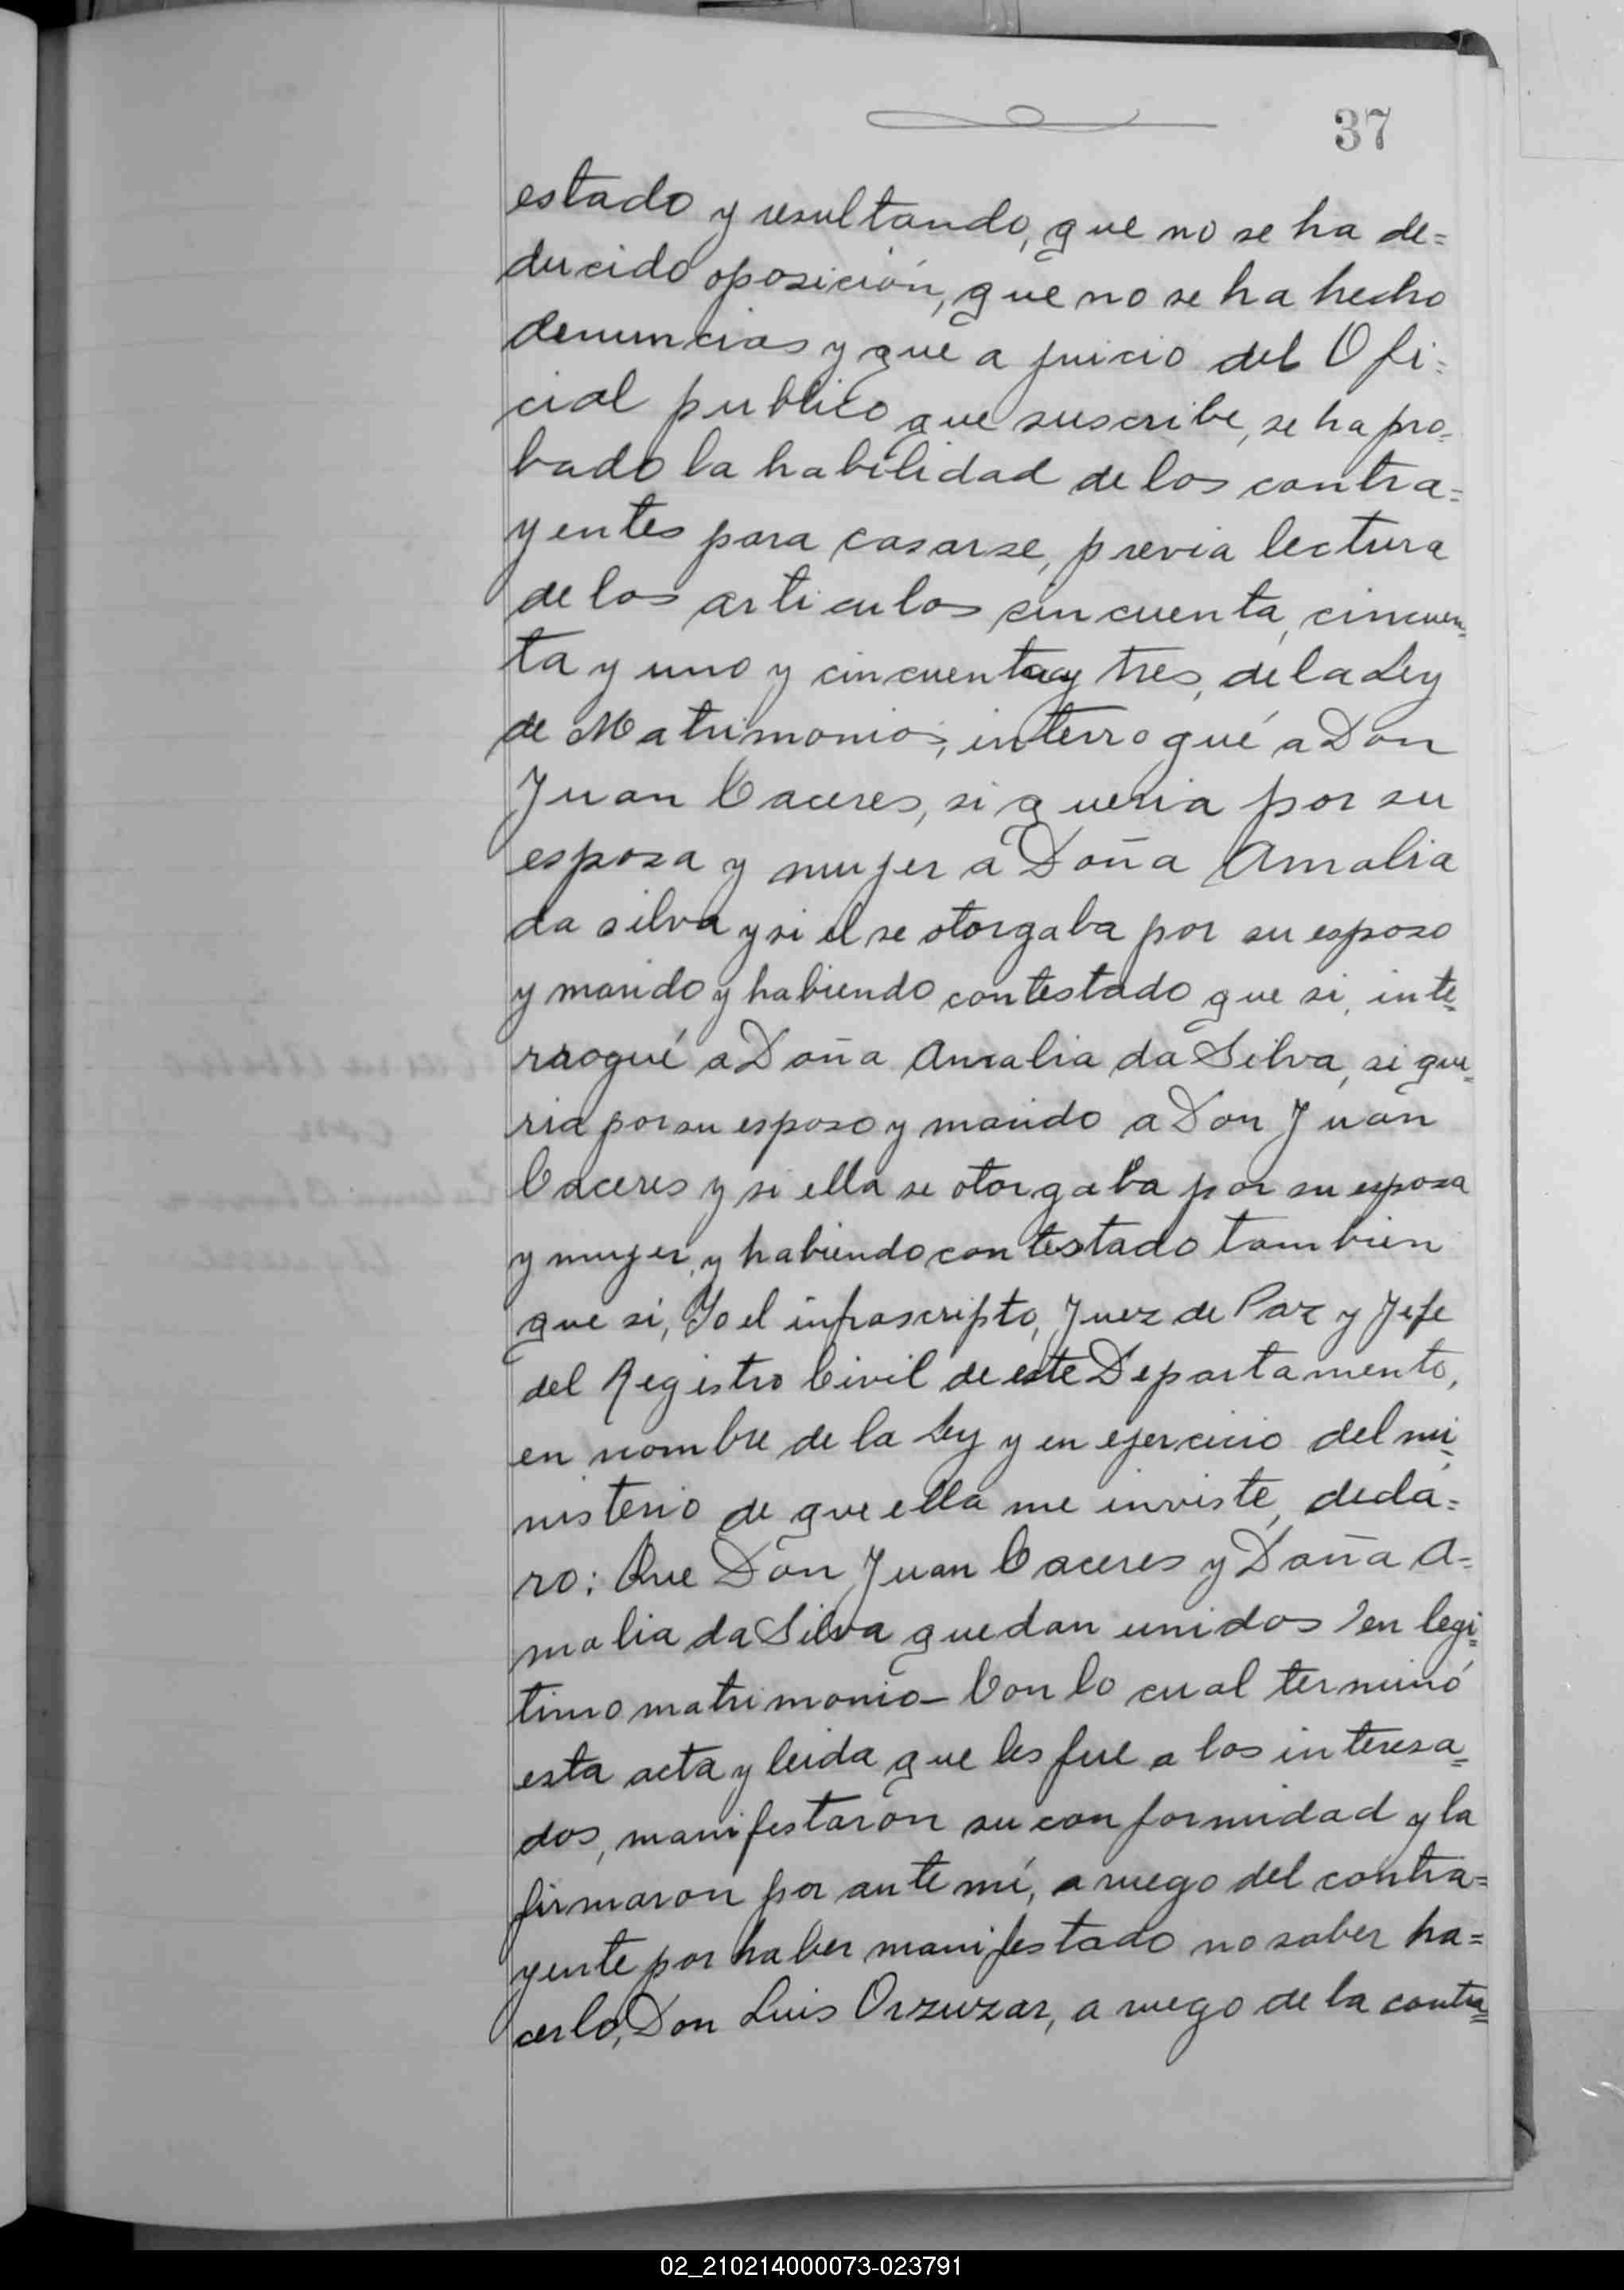 37
estado y resultando, que no se ha de=
ducido oposición, que no se ha hecho
denuncias y que a juicio del Ofi=
cial publico que suscribe, se ha pro=
bado la habilidad de los contra=
yentes para casarse, previa lectura
de los articulos cincuenta, cincuen=
ta y uno y cincuenta y tres, de la Ley
de Matrimonios, interrogué a Don
Juan Caceres, si queria por su
esposa y mujer a Doña Amalia
da silva y si el se otorgaba por su esposo
y marido y habiendo contestado que si, inte=
rrogué a Doña Amalia da Silva, si que=
ria por su esposo y marido a Don Juan
Caceres y si ella se otorgaba por su esposa
y mujer, y habiendo contestado tambien
que si, Yo el infrascripto, Juez de Paz y Jefe
del Registro Civil de este Departamento,
en nombre de la Ley y en ejercicio del mi=
nisterio de que ella me inviste, decla=
ro: Que Don Juan Caceres y Doña A=
malia da Silva quedan unidos en legi=
timo matrimonio- Con lo cual terminó
esta acta y leida que les fue a los interesa=
dos, manifestaron su conformidad y la
firmaron por ante mí, a ruego del contra=
yente por haber manifestado no saber ha=
cerlo, Don Luis Orzuzar, a ruego de la contra=
02_210214000073-023791